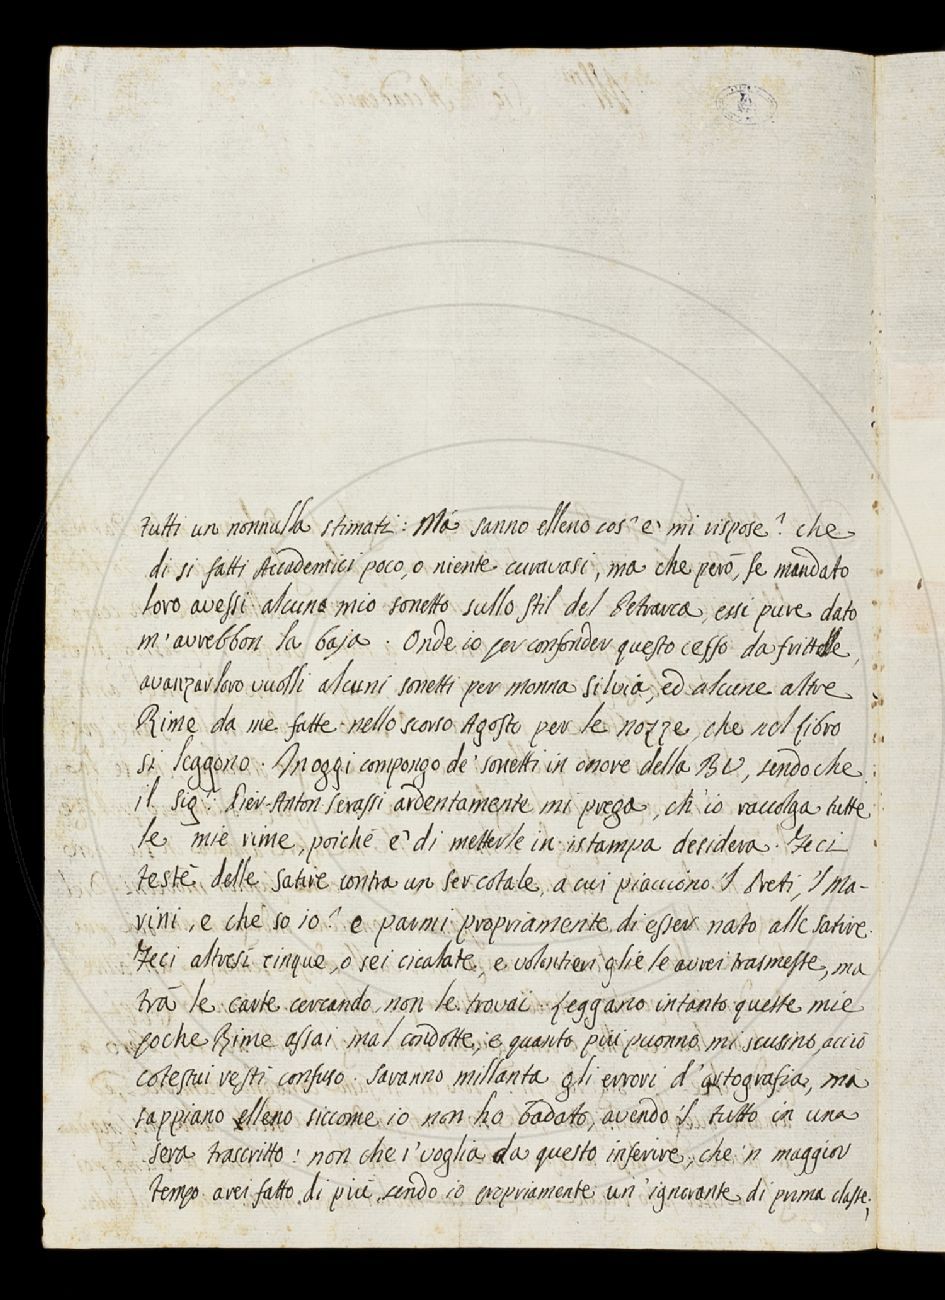 tutti un nonnulla stimati: Mà sanno elleno cos' e' mi rispose? che
di si fatti Accademici poco, o niente curavasi, ma che però, se mandato
loro avessi alcuno mio sonetto sullo stil del Petrarca, essi pure dato
m' aurebbon la baja. Onde io per confonder questo ceffo da frittelle,
avanzar loro vuolli alcuni sonetti per monna Silvia, ed alcune altre
Rime da me fatte nello scorso Agosto per le nozze, che nel libro
si leggono. In oggi compongo de' sonetti in onore della BV, sendo che
il sig.r Pier-Anton Serassi ardentamente mi prega, ch' io raccolga tutte
le mie rime, poiché e' di metterle in istampa desidera. Feci
testè delle satire contra un ser cotale, a cui piacciono 'l Preti, 'l Ma-
rini, e che so io? e parmi propriamente di esser nato alle satire.
Feci altresì cinque, o sei cicalate, e volontieri glie le avrei trasmesse, ma
trà le carte cercando, non le trovai. Leggano intanto queste mie
poche Rime assai mal condotte, e quanto più puonno mi scusino, acciò
cotestui resti confuso. Saranno millanta gli errori d' ortografia, ma
sappiano elleno siccome io non ho badato, avendo 'l tutto in una
sera trascritto: non che i' voglia da questo inferire, che 'n maggior
tempo avrei fatto di più, sendo io propriamente un' ignorante di prima classe;